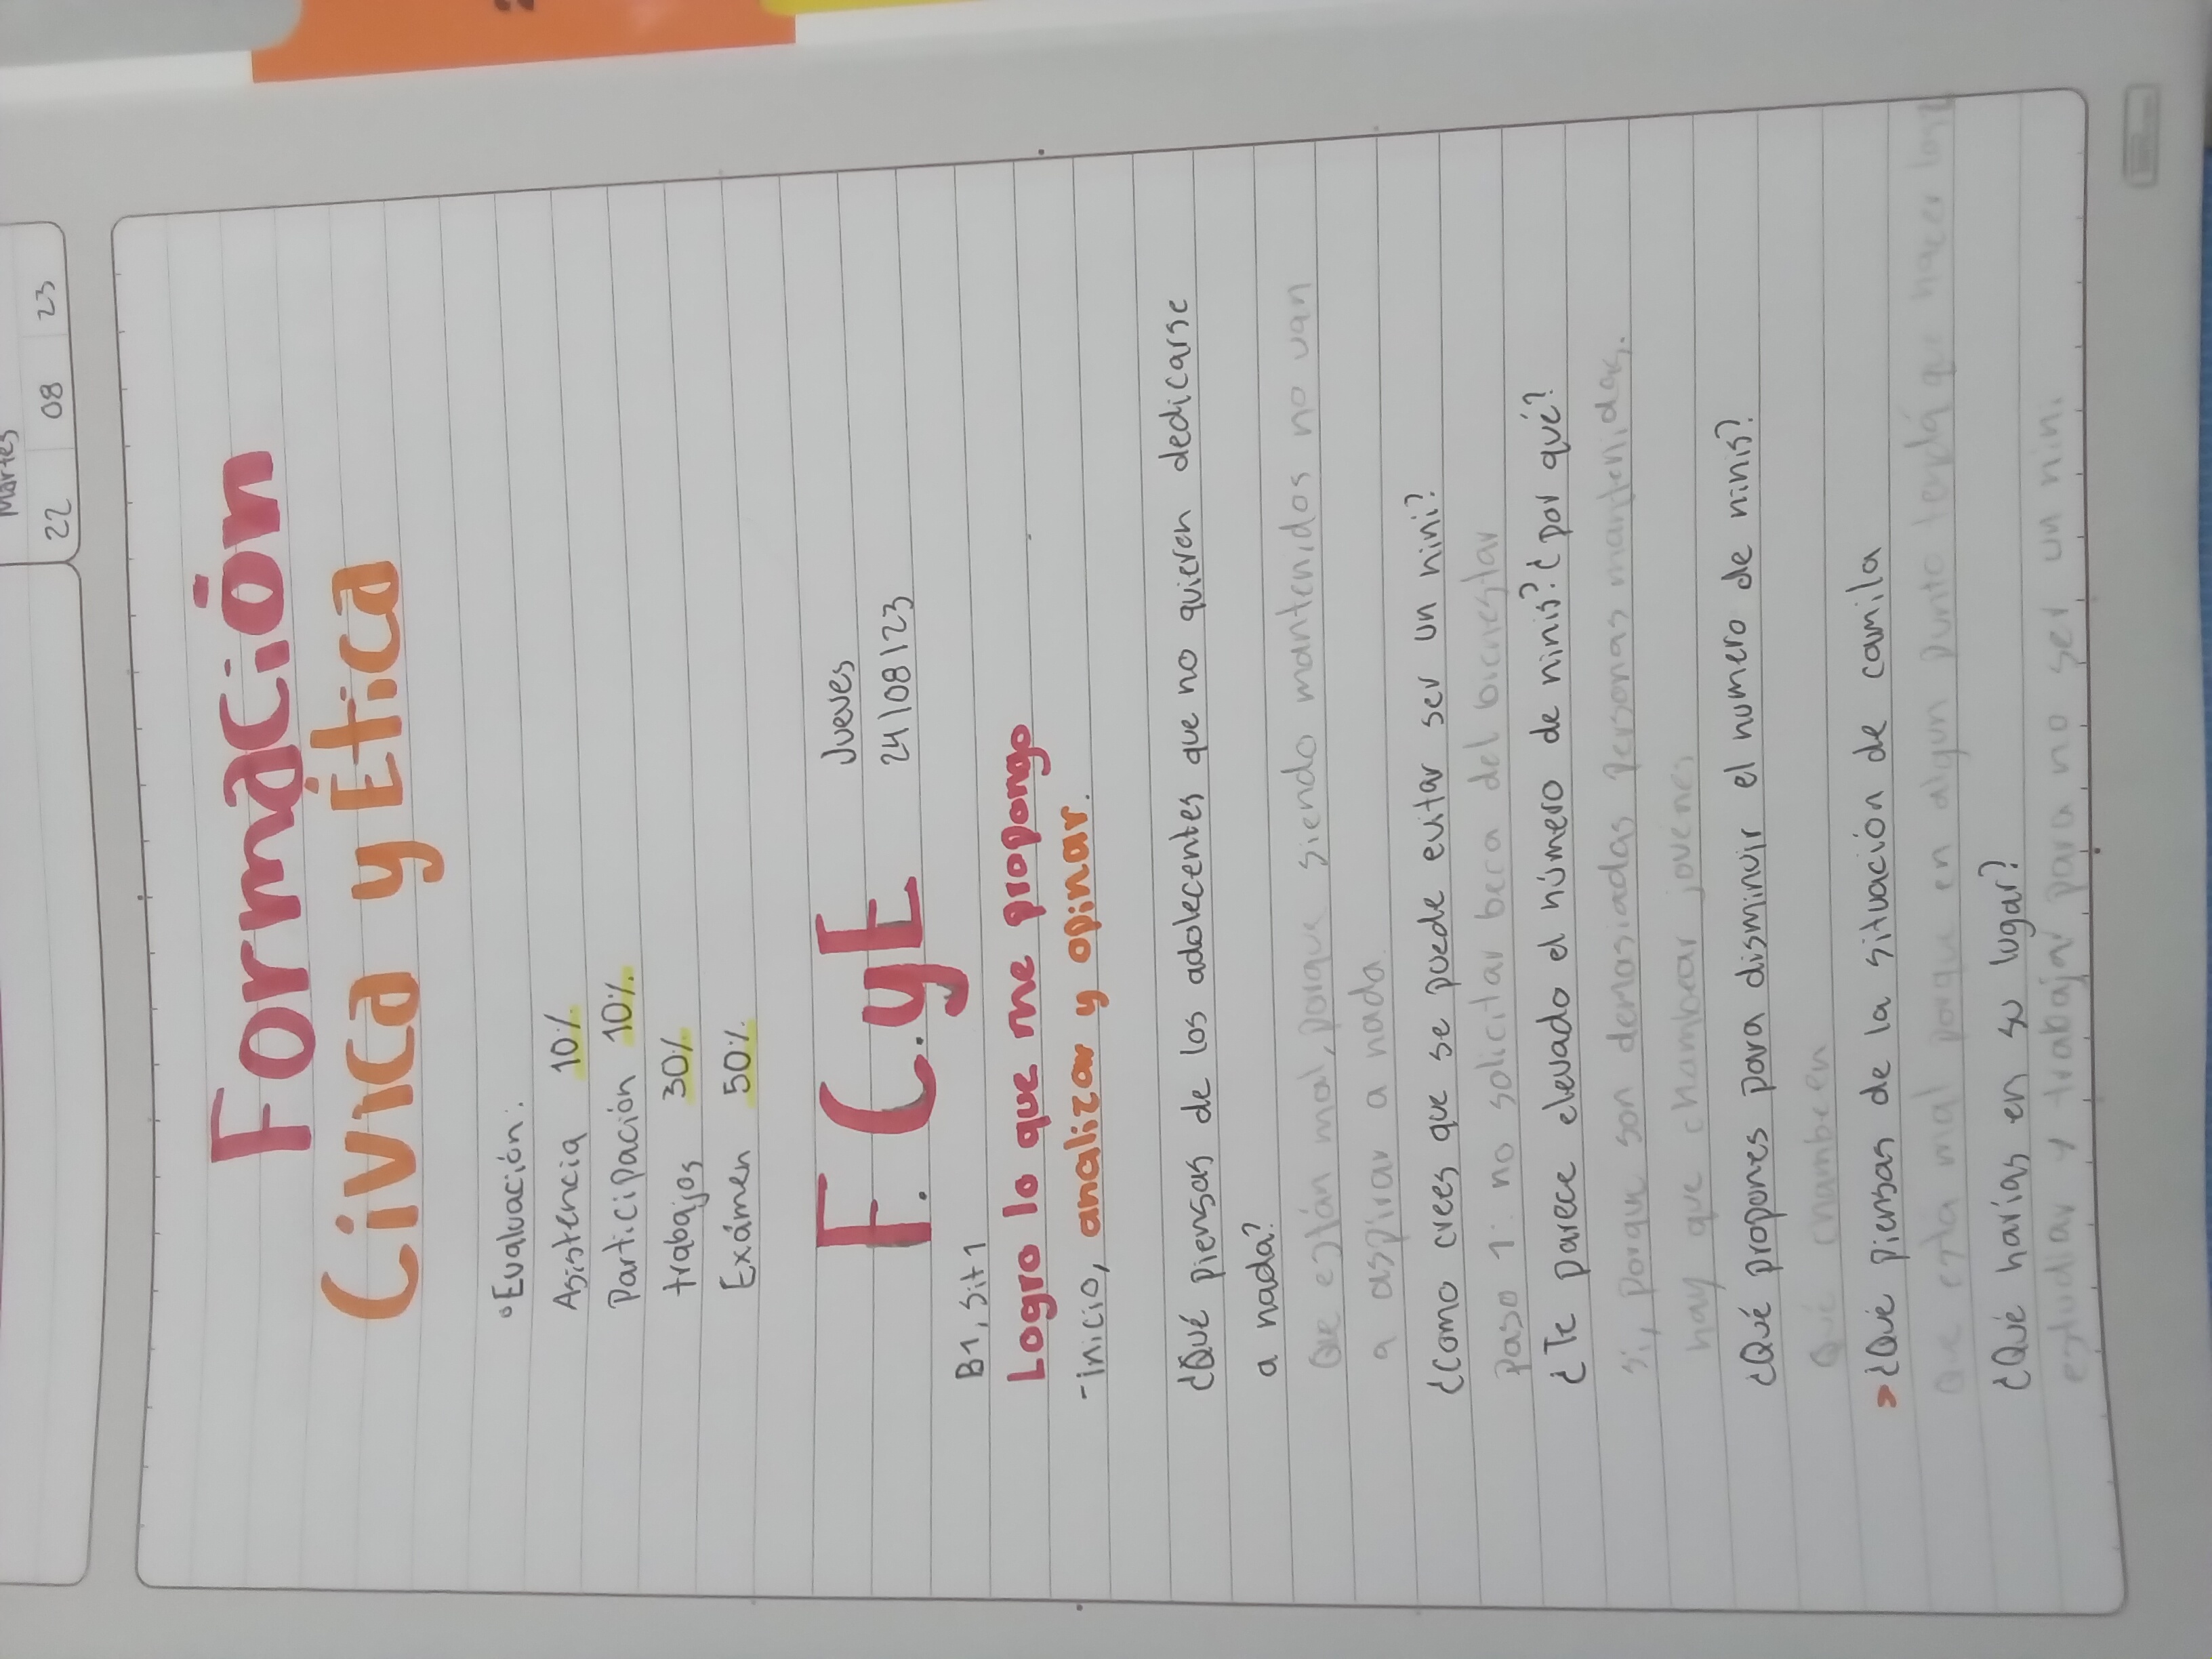 Martes
22 08 23
Formación
Cívica y Ética
°Evaluación:
Asistencia 10%
Participación 10%
trabajos 30%
Exámen 50%
F. C.yE
Jueves
24/08/23
B1, Sit1
Logro lo que me propongo
-inicio, analizar y opinar.
¿Qué piensas de los adolecentes que no quieren dedicarse
a nada?
Que están mal, porque siendo mantenidos no van
a aspirar a nada
¿Como crees que se puede evitar ser un nini?
Paso 1: no solicitar beca del bienestar
¿Te parece elevado el número de ninis? ¿por qué?
si, porque son demasiadas personas mantenidas.
hay que chambear jovenes
¿Qué propones para disminuir el numero de ninis?
Qué chambeen
>¿Qué piensas de la situación de camila
Que esta mal porque en algun punto tendrá que hacer
¿Qué harías en su lugar?
estudiar y trabajar para no ser un nini